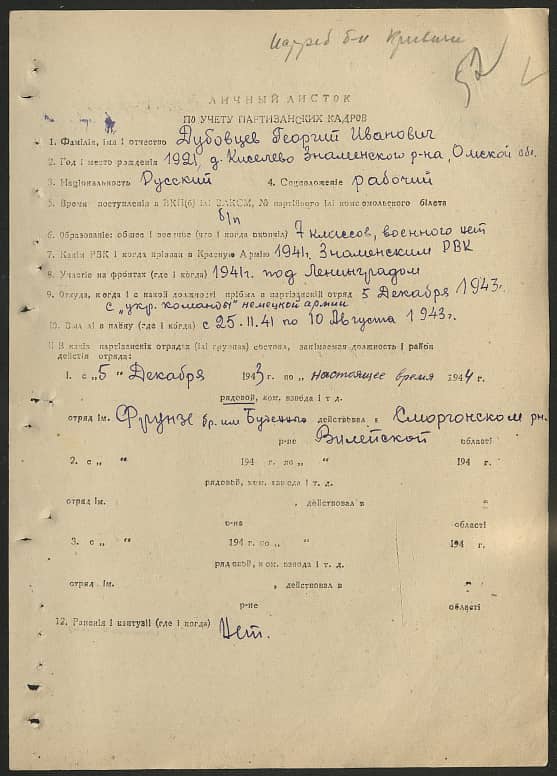 52
ЛИЧНЫЙ ЛИСТОК
ПО УЧЕТУ ПАРТИЗАНСКИХ КАДРОВ
1. Фамілія, імя і отчество Дубовцев Георгий Иванович
2. Год і место рождения 1921, д. Киселево Знаменского р-на, Омской обл.
3. Національность Русский 4. Соцположение рабочий
5. Время поступления в ВКП(б) ілі ВЛКСМ, № партійного ілі комсомольского білета
б/п
6. Образованіе: общее і военное (что і когда окончіл) 7 классов, военного нет
7. Какім РВК і когда прізван в Красную Армію 1941г. Знаменским РВК
8. Участіе на фронтах (где і когда) 1941г. под Ленинградом
9. Откуда, когда і с какой должності прібыл в партізанскій отряд 5 Декабря 1943г.
с "укр. команды" немецкой армии
10. Был лі в плену (где і когда) с 25.11.41 по 10 Августа 1943г.
11 В какіх партізанскіх отрядах (ілі группах) состоял, занімаемая должность і район
действія отряда:
1. с "5" Декабря 1943 г. по "настоящее время 1944 г.
рядовой, ком. взвода і т д.
отряд ім. Фрунзе бр. им Буденного действовал в Сморгонском рн.
р-не Вилейской області
2. с " " 194 г. по " " 194 г.
рядовой, ком. взвода і т. д.
отряд ім. , действовал в "
р-на області
3. с " " 194 г. по " " 194 г.
рядовой, ком. взвода і т. д.
отряд ім. , действовал в
р-не області
12. Раненія і контузіі (где і когда) Нет.